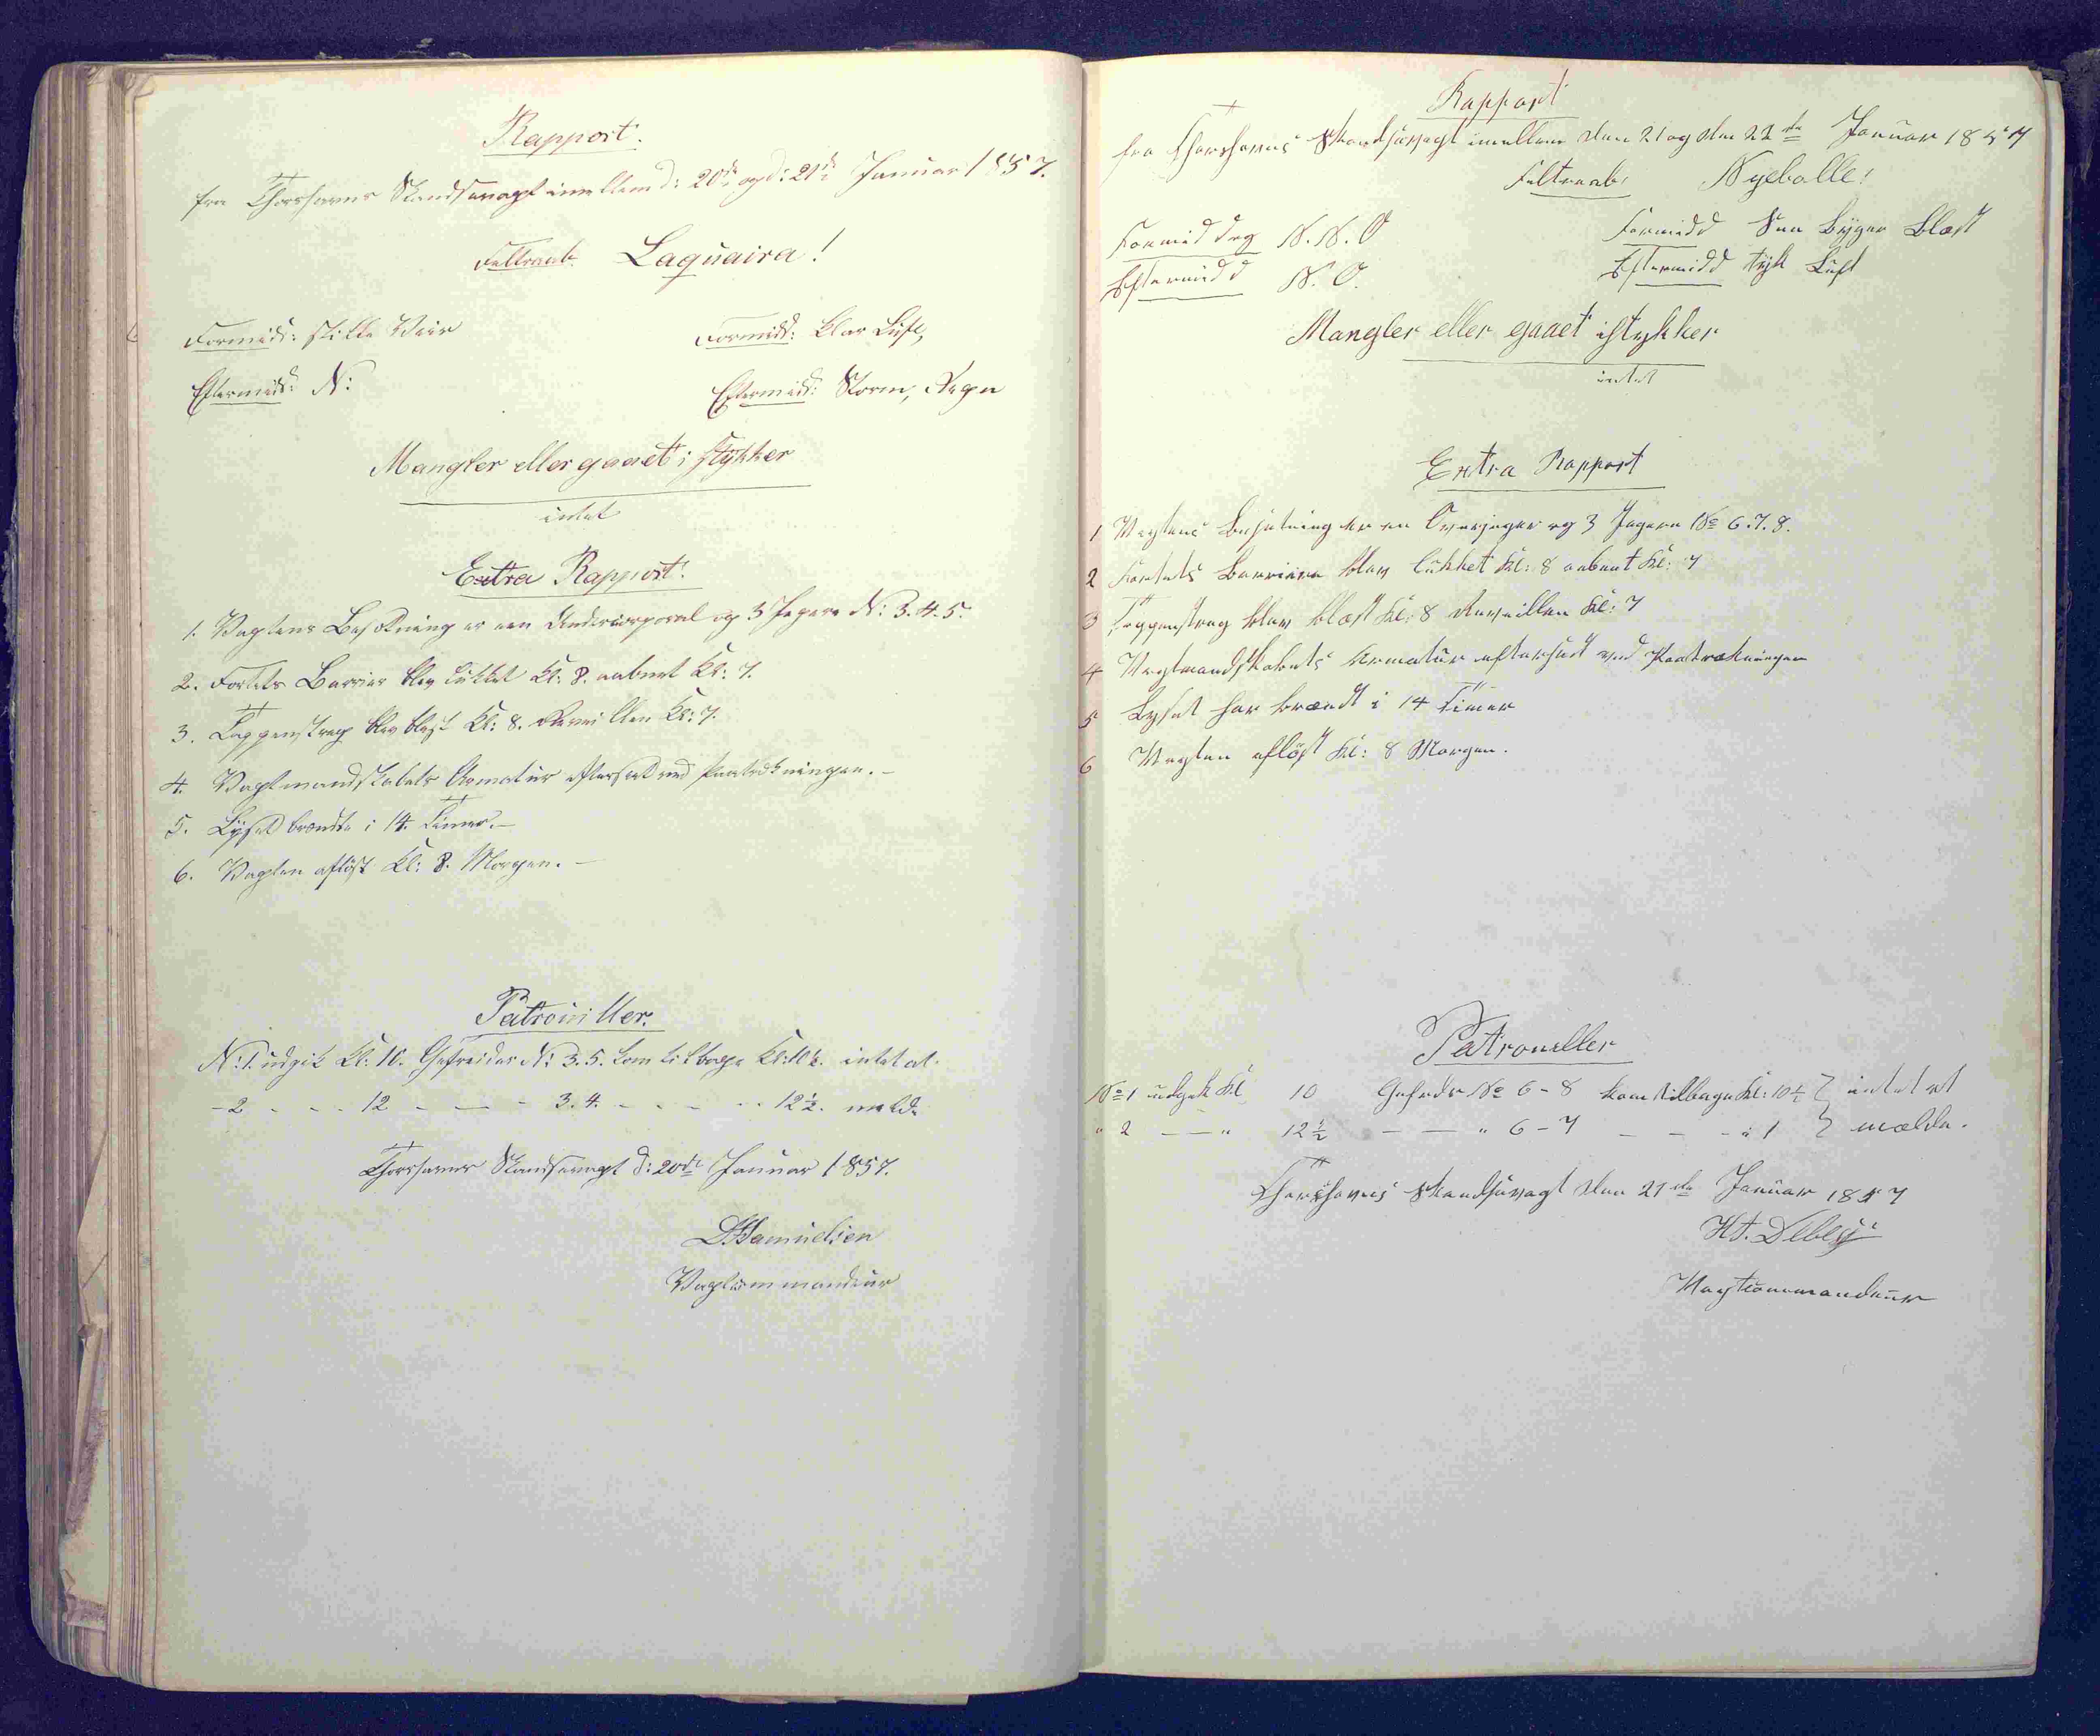 Rapport.
fra Thorshavns Skandsevagt imellem d: 20de og d: 21de Januar 1857.
Feltraab. Laquaira!
Formidd: stille Veir
Formidd: klar Luft,
Eftermidd: N:
Eftermidd: Storm, Regn
Mangler eller gaaet i stÿkker
intet
Extra Rapport.
1. Vagtens Besætning er een Undercorporal og 3 Jegere N: 3. 4. 5.
2. Fortets Barrier blev lukket Kl: 8. aabnet Kl: 7.
3. Tappenstreg blev blæst Kl: 8. Reveillen Kl: 7.
4. Vagtmandskabets Armatur efterseet ved Paatrækningen. –
5. Lyset brændte i 14 Timer. –
6. Vagten afløst Kl: 8. Morgen. –
Patrouiller.
N: 1. udgik Kl: 10. Gefreider N: 3. 5. kom tilbage Kl: 10½. intet at
- 2 - - - 12 - - - 3. 4. - - - - 12½. melde
Thorshavns Skandsevagt d: 20de Januar 1857.
Samuelsen
Vagtcommandeur
Rapport
fra Thorshavns Skandsevagt imellem den 21 og den 22de Januar 1857
Feltraab: Nyeballe!
Formiddag N. N. O
Formidd Snee Byger Blæst
Eftermidd N. O.
Eftermidd tyk Luft
Mangler eller gaaet istykker
intet
Extra Rapport
1 Vagtens Besætning er en Overjæger og 3 Jægere No 6. 7. 8.
2 Fortets Barriere blev lukket Kl: 8 aabnet Kl: 7
3 Tappenstreg blev blæst Kl: 8 Reveillen Kl: 7
4 Vagtmandskabets Armatur efterseet ved Paatrækningen
5 Lyset har brændt i 14 Timer
6 Vagten afløst Kl: 8 Morgen.
Patrouiller
No 1 udgik Kl 10 Gefrdr No 6 - 8 kom tilbage Kl: 10½ } intet at
" 2 — " 12½ — — " 6 - 7 - - - " 1 } melde.
Thorshavns Skandsevagt den 21de Januar 1857
Debes
Vagtcommandeur